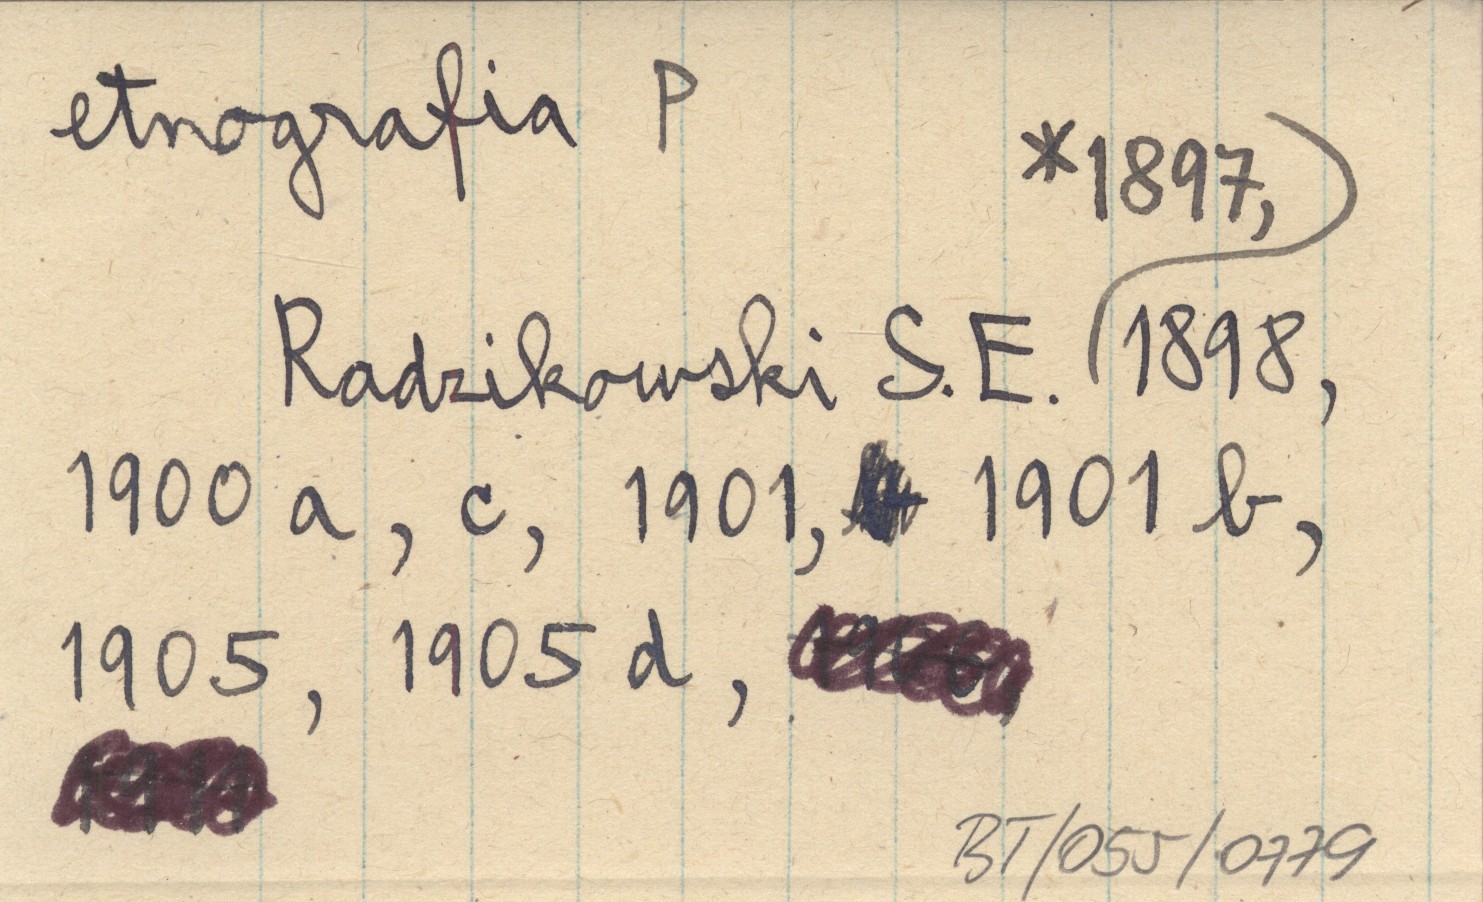 etnografia P
*1897,
Radzikowski S.E. 1898,
1900 a, c, 1901, 1901 b,
1905, 1905 d,
BT/055/0779